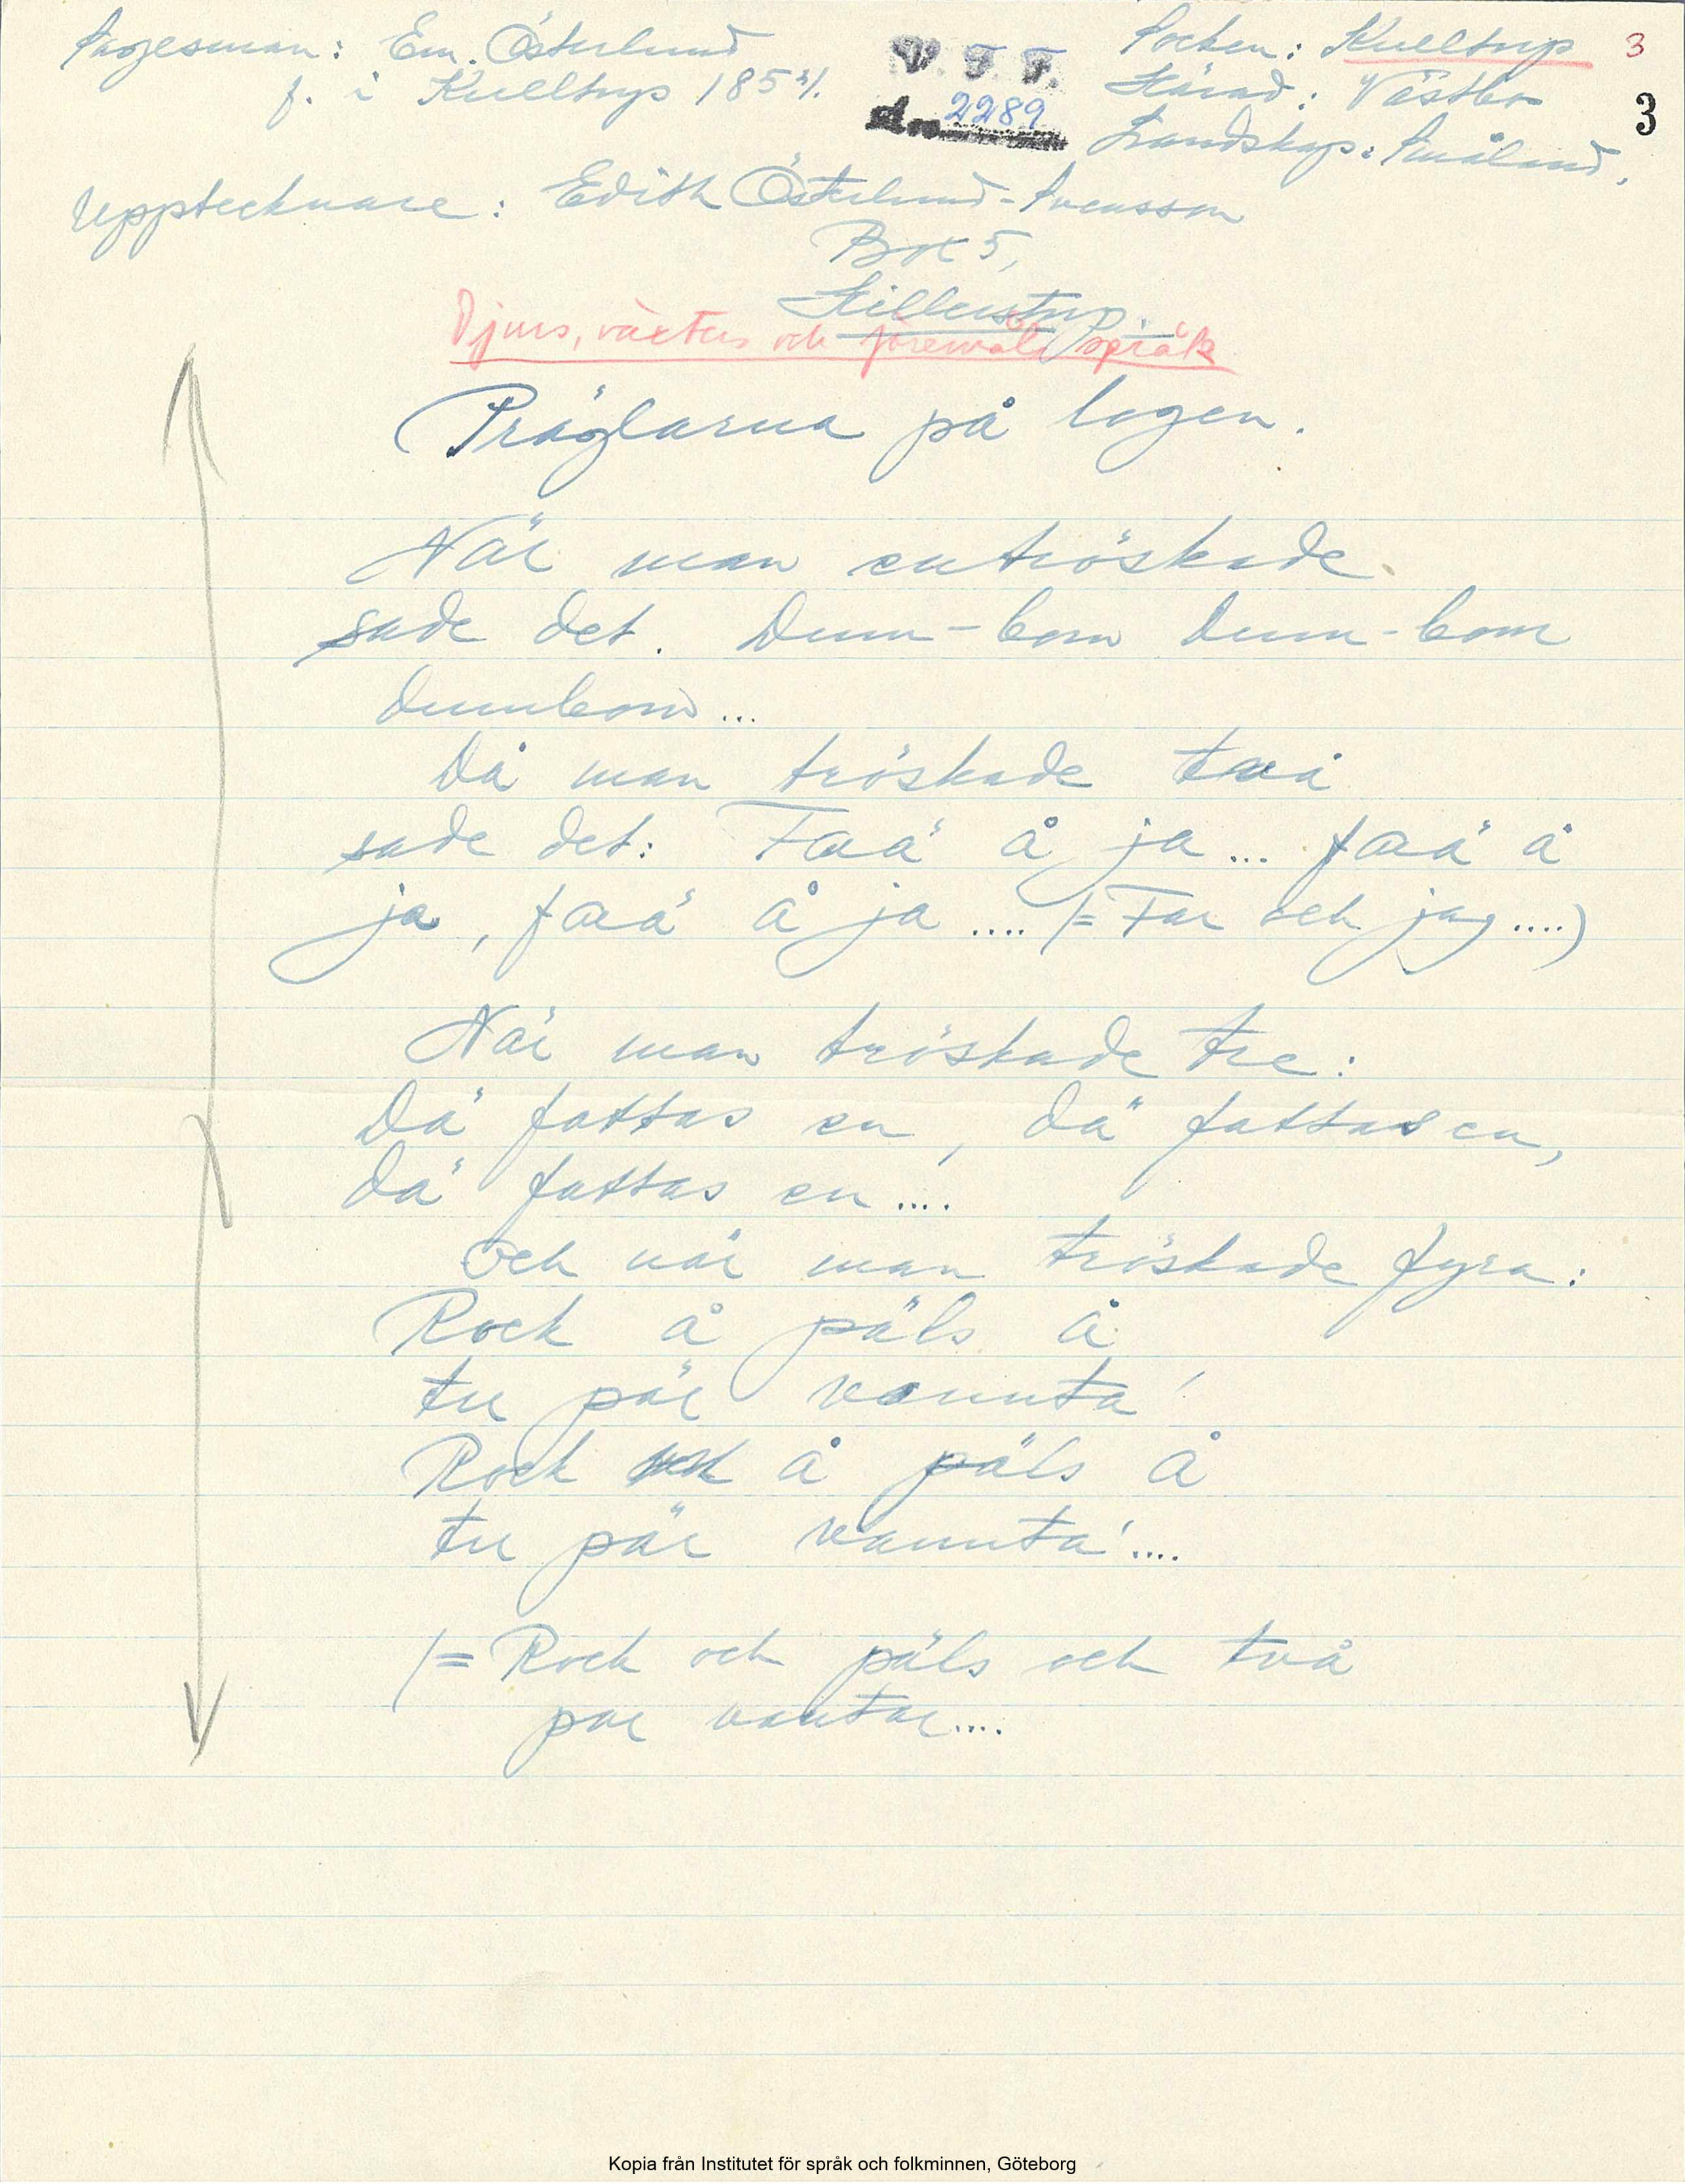 Sagesman: Em. Österlund
f. i Kulltorp 1854.
V. F. F.
2289
Socken: Kulltorp 3
Härad: Västbo
3
Landskap: Småland.
Upptecknare: Edith Österlund-Svensson
Box 5,
Hillerstorp.
Djurs, växters och föremåls språk
Präglarna på logen.
När man entröskade
sade det. Dum-bom dum-bom
dumbom...
Då man tröskade två
sade det: Faä å ja... faä å
ja, faä å ja .... (= Far och jag ....)
När man tröskade tre:
Dä fattas en, dä fattas en,
dä fattas en ....
och när man tröskade fyra:
Rock å päls å
tu pär vannta!
Rock å päls å
tu pär vannta!....
(= Rock och päls och två
par vantar....
Kopia från Institutet för språk och folkminnen, Göteborg